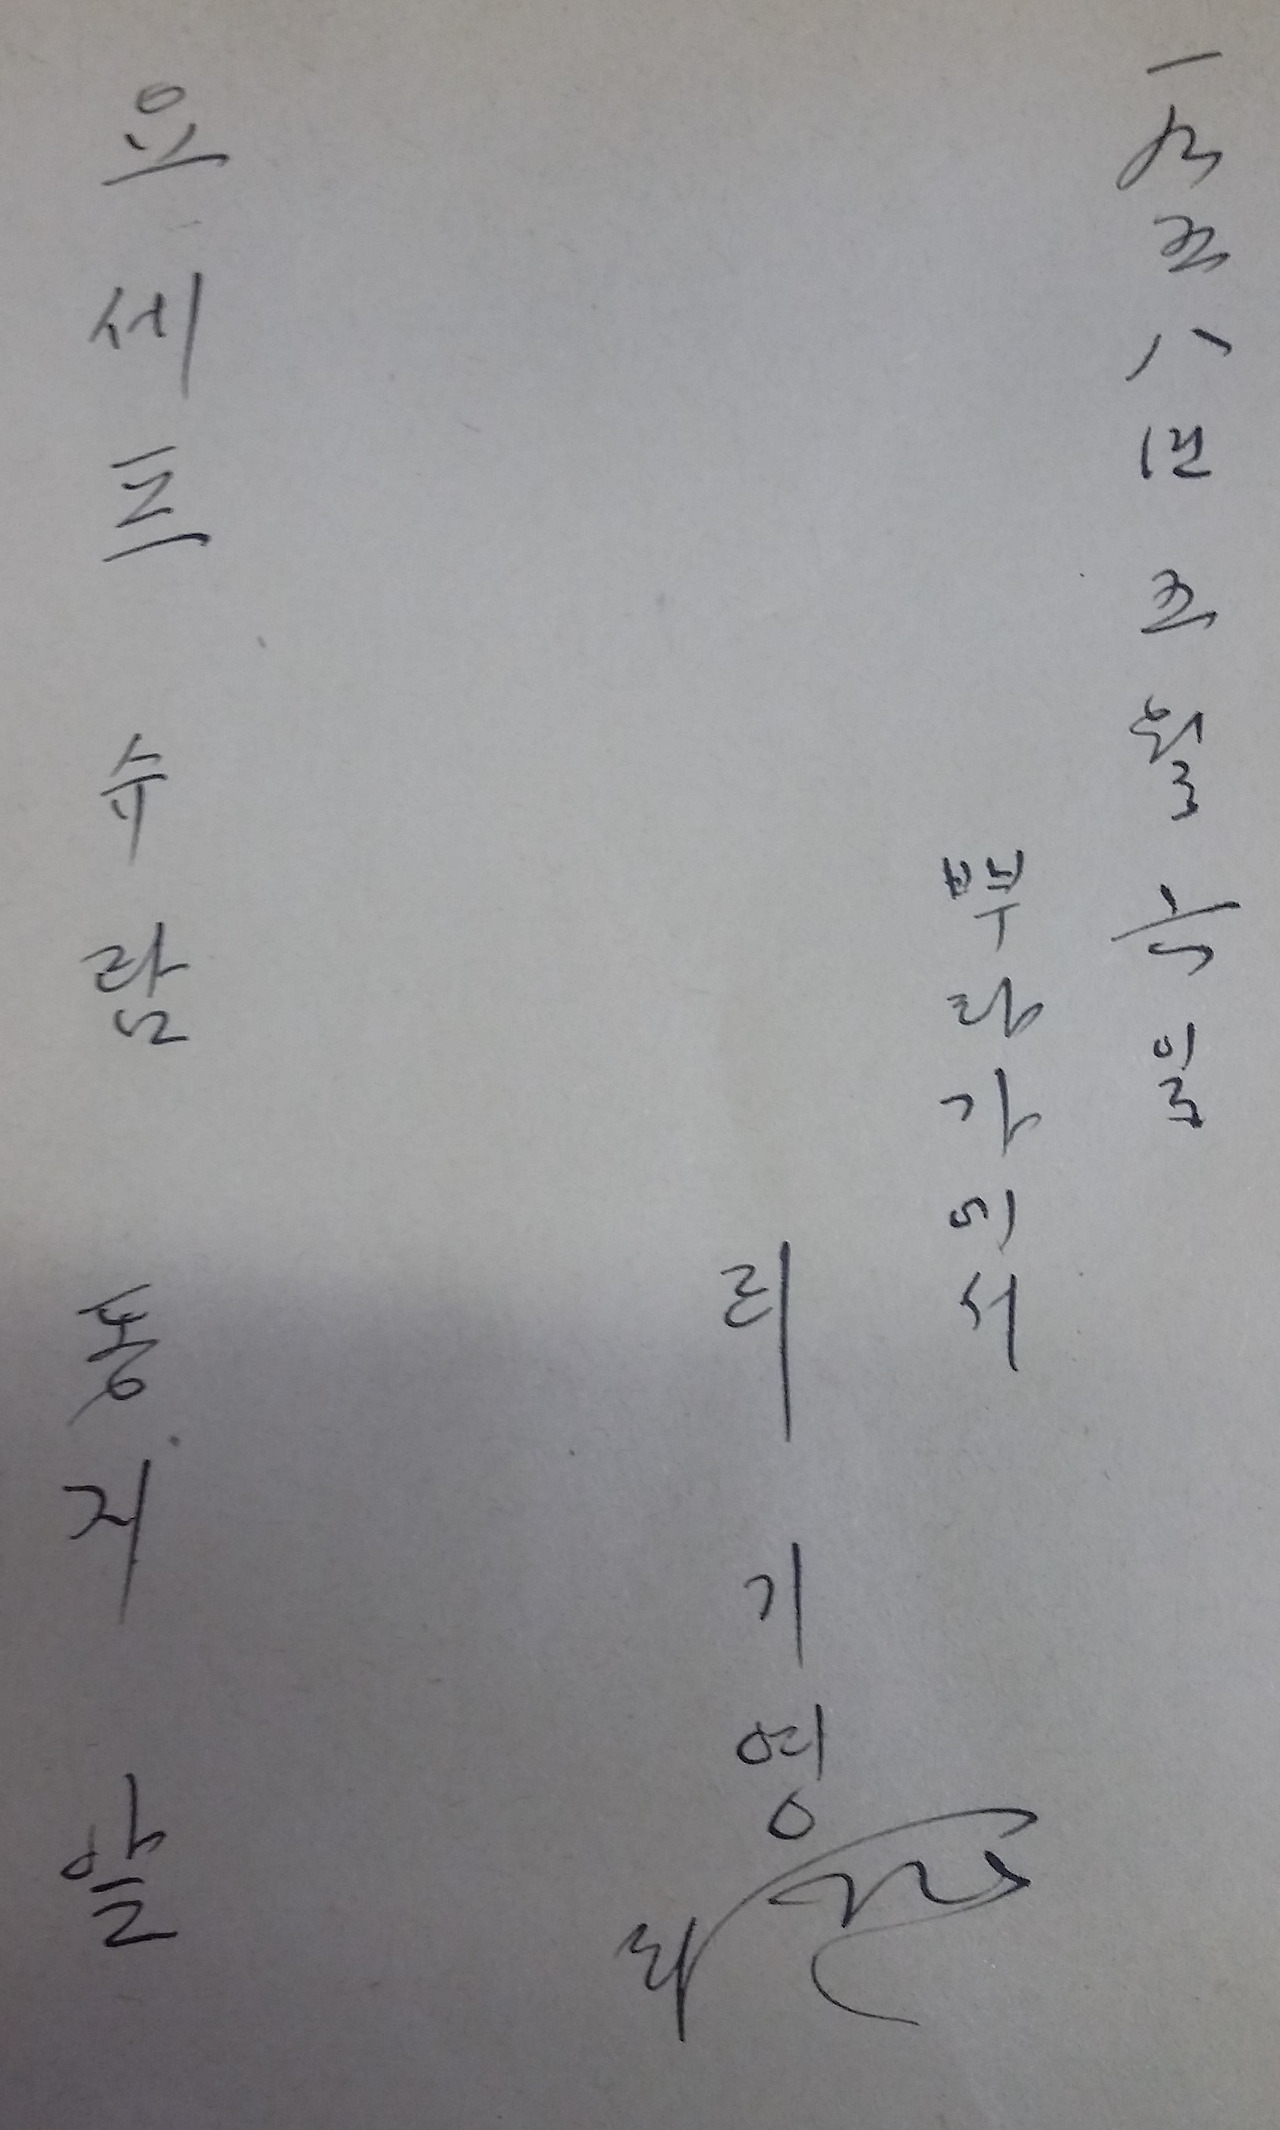 一九五八년 五월 六일
뿌라가에서
리 기영
요세프 슈람 동지 앞